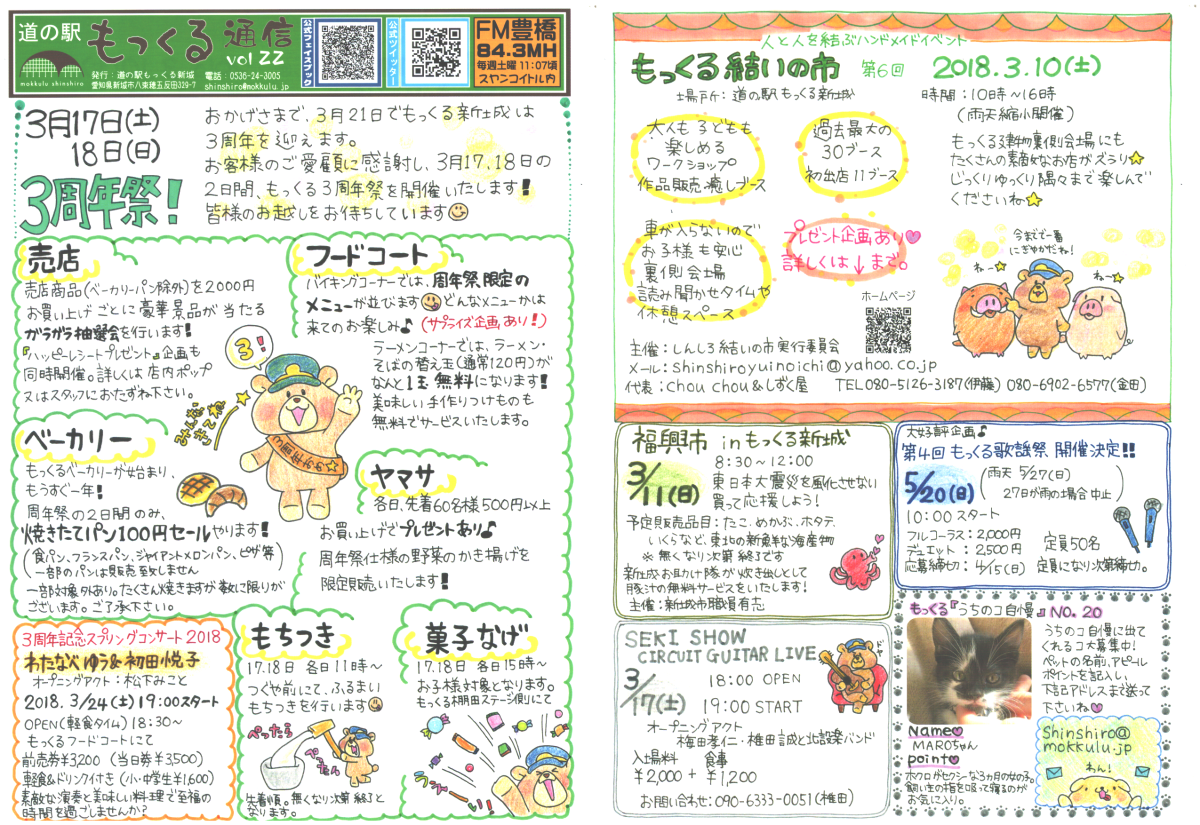 道の駅
もっくる通信
vol 22
mokkulu shinshiro
発行：道の駅もっくる新城　電話：0536-24-3005
愛知県新城市八束穂五反田329-7　shinshiro@mokkulu.jp
公式フェイスブック
公式ツイッター
FM豊橋
84.3MH
毎週土曜 11:07頃
スヤンコイトル内
3月17日(土)
18日(日)
3周年祭!
おかげさまで、3月21日でもっくる新城は
3周年を迎えます。
お客様のご愛顧に感謝し、3月17.18日の
2日間、もっくる3周年祭を開催いたします!
皆様のお越しをお待ちしています
売店
売店商品(ベーカリーパン除外)を2,000円
お買い上げごとに豪華景品が当たる
ガラガラ抽選会を行います!
『ハッピーシートプレゼント』企画も
同時開催。詳しくは店内ポップ
又はスタッフにおたずね下さい。
フードコート
バイキングコーナーでは、周年祭限定の
メニューが並びます どんなメニューかは
来てのお楽しみ♪(サプライズ企画あり!)
ラーメンコーナーでは、ラーメン・
そばの替え玉(通常120円)が
なんと1玉無料になります!
美味しい手作りつけものも
無料でサービスいたします。
3!
みんなきてね
3周年祭
ベーカリー
もっくるベーカリーが始まり、
もうすぐ一年!
周年祭の2日間のみ、
焼きたてパン100円セールやります!
(食パン、フランスパン、ジャイアントメロンパン、ピザ等
一部のパンは販売致しません)
一部対象外あり。たくさん焼きますが数に限りが
ございます。ご了承下さい。
ヤマサ
各日、先着60名様500円以上
お買い上げでプレゼントあり♪
周年祭仕様の野菜のかき揚げを
限定販売いたします!
3周年記念スプリングコンサート2018
わたなべゆう&初田悦子
オープニングアクト：松下みこと
2018. 3/24(土) 19:00スタート
OPEN(軽食タイム) 18:30～
もっくるフードコートにて
前売券¥3,200 (当日券¥3,500)
軽食&ドリンク付き(小・中学生¥1,600)
素敵な演奏と美味しい料理で至福の
時間を過ごしませんか?
もちつき
17.18日 各日11時～
つぐや前にて、ふるまい
もちつきを行います
ぺったら
ぺったん
先着順。無くなり次第終了と
なります。
菓子なげ
17.18日 各日15時～
お子様対象となります。
もっくる棚田ステージ側にて
人と人を結ぶハンドメイドイベント
もっくる結いの市 第6回 2018.3.10(土)
場所：道の駅もっくる新城
時間：10時～16時
(雨天縮小開催)
大人も子どもも
楽しめる
ワークショップ
作品販売、癒しブース
過去最大の
30ブース
初出店11ブース
もっくる建物裏側会場にも
たくさんの素敵なお店がズラリ☆
じっくりゆっくり隅々まで楽しんで
くださいね☆
車が入らないので
お子様も安心
裏側会場
読み聞かせタイムや
休憩スペース
プレゼント企画あり♥
詳しくは↓まで。
ホームページ
今までで一番
にぎやかだね!
ねー☆
ねー☆
主催：しんしろ結いの市実行委員会
メール：shinshiroyuinoichi@yahoo.co.jp
代表：chou chou&しずく屋 TEL080-5126-3187(伊藤) 080-6902-6577(金田)
福興市 inもっくる新城
3/11(日)
8:30～12:00
東日本大震災を風化させない
買って応援しよう!
予定販売品目：たこ、めかぶ、ホタテ、
いくらなど、東北の新鮮な海産物
※無くなり次第終了です
新城お助け隊が炊き出しとして
豚汁の無料サービスをいたします!
主催：新城市職員有志
大好評企画♪
第4回 もっくる歌謡祭 開催決定!!
5/20(日)
(雨天 5/27(日)
27日が雨の場合中止)
10:00スタート
フルコーラス：2,000円
デュエット：2,500円
応募締切：4/15(日)
定員50名
定員になり次第締切。
SEKI SHOW
CIRCUIT GUITAR LIVE
3/17(土)
18:00 OPEN
19:00 START
オープニングアクト
権田孝仁・椎田誠と北設楽バンド
入場料 食事
¥2,000 + ¥1,200
お問い合わせ：090-6333-0051(椎田)
もっくる『うちのコ自慢』NO. 20
うちのコ自慢に出て
くれるコ大募集中!
ペットの名前、アピール
ポイントを記入し、
下記アドレスまで送って
下さいね♥
Name♥
MAROちゃん
point♥
ホクロがセクシーな3ヵ月の女の子。
飼い主の指を吸って寝るのが
お気に入り。
Shinshiro@
mokkulu.jp
わん!